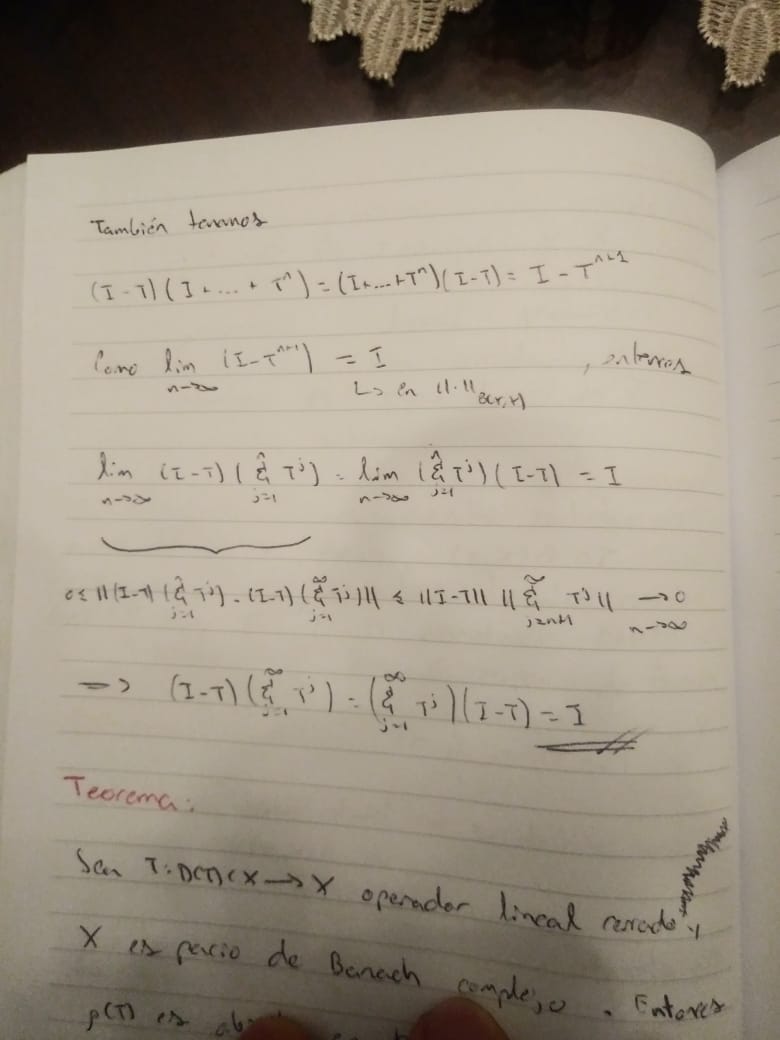 También tenemos
(I - T)(I + ... + Tⁿ) = (I + ... + Tⁿ)(I - T) = I - Tⁿ⁺¹
Como lim_{n→∞} (I - Tⁿ⁺¹) = I , entonces
↳ en ||·||_{B(X,X)}
lim_{n→∞} (I - T)(Σ_{j=1}^{n} T^j) = lim_{n→∞} (Σ_{j=1}^{n} T^j)(I - T) = I
0 ≤ ||(I-T)(Σ_{j=1}^{n} T^j) - (I-T)(Σ_{j=1}^{∞} T^j)|| ≤ ||I-T|| ||Σ_{j=n+1}^{∞} T^j|| →_{n→∞} 0
⇒ (I - T)(Σ_{j=1}^{∞} T^j) = (Σ_{j=1}^{∞} T^j)(I - T) = I
Teorema:
Sea T: D(T) ⊂ X → X operador lineal cerrado y
X espacio de Banach complejo. Entonces
ρ(T) es